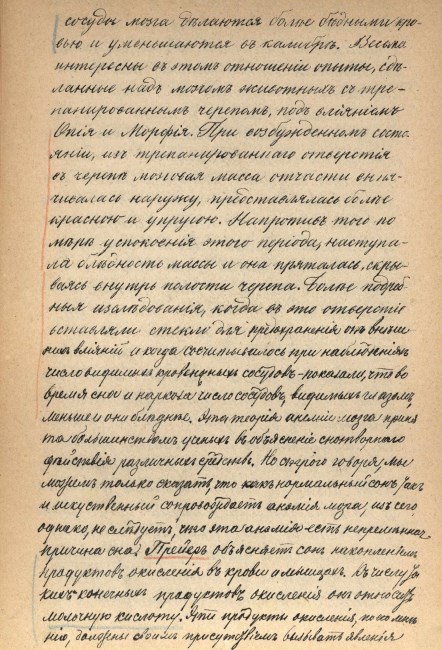 сосуды мозга дѣлаются болѣе бѣдными кро-
вью и уменьшаются въ калибрѣ. Весьма
интересны въ этомъ отношеніи опыты, сдѣ-
ланные надъ мозгомъ животныхъ съ тре-
панированнымъ черепомъ, подъ вліяніемъ
Опія и Морфія. При возбужденномъ состо-
яніи, изъ трепанированнаго отверстія
въ черепѣ мозговая масса отчасти выпя-
чивалась наружу, представлялась болѣе
красною и упругою. Напротивъ того по
мѣрѣ успокоенія этого періода, наступа-
ла блѣдность массы и она пряталась, скры-
ваясь внутрь полости черепа. Болѣе подроб-
ныя изслѣдованія, когда въ это отверстіе
вставляли стекло для предохраненія отъ внѣш-
нихъ вліяній и когда сосчитывалось при наблюденіяхъ
число видимыхъ кровеносныхъ сосудовъ - показали, что во
время сна и наркоза число сосудовъ, видимыхъ глазомъ,
меньше и они блѣднѣе. Эта теорія анеміи мозга приня-
та большинствомъ ученыхъ въ объясненіе снотворнаго
дѣйствія различныхъ средствъ. Но строго говоря, мы
можемъ только сказать, что какъ нормальный сонъ, такъ
и искуственный сопровождаетъ анэмія мозга, изъ чего
однако, не слѣдуетъ, что эта анэмія есть непремѣнная
причина сна. Прейеръ объясняетъ сонъ накопленіемъ
продуктовъ окисленія въ крови и мышцахъ. Къ числу та-
кихъ конечныхъ продуктовъ окисленія онъ относитъ
молочную кислоту. Эти продукты окисленія, по его мнѣ-
нію, должны своимъ присутствіемъ вызывать явленія